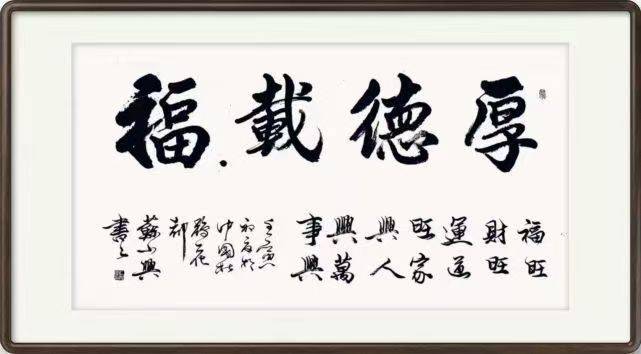 厚德載福
福旺
財旺
運道
旺家
興人
興萬
事興
壬寅
初夏於
中國杜
鵑花
都
蘇小興
書之